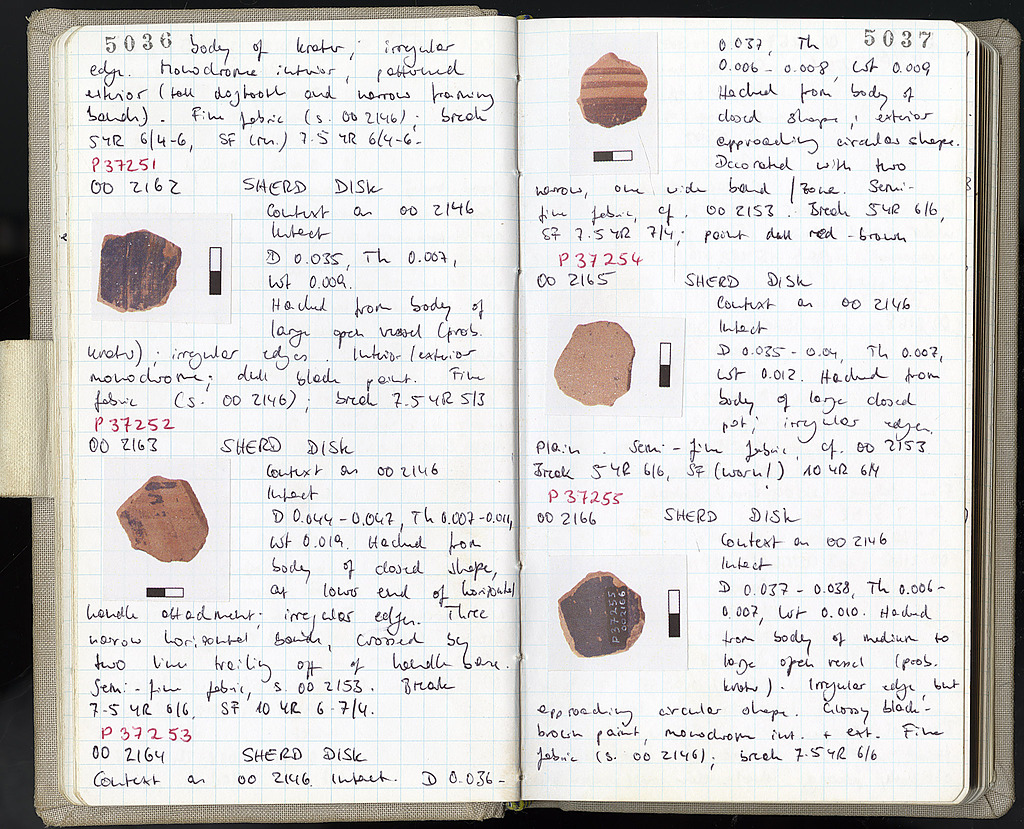 5036 body of krater; irregular
edge. Monochrome interior, patterned
exterior (tall dogtooth and narrow framing
bands). Fine fabric (s. 00 2146); break
5 YR 6/4-6, SF (int.) 7.5 YR 6/4-6.
P 37251
00 2162 SHERD DISK
Context as 00 2146
Intact
D 0.035, Th 0.007,
Wt 0.009.
Hacked from body of
large open vessel (prob.
krater); irregular edges. Interior/exterior
monochrome; dull black paint. Fine
fabric (s. 00 2146); break 7.5 YR 5/3
P 37252
00 2163 SHERD DISK
Context as 00 2146
Intact
D 0.044-0.047, Th 0.007-0.011,
Wt 0.019. Hacked from
body of closed shape,
at lower end of horizontal
handle attachment; irregular edges. Three
narrow horizontal bands, crossed by
two lines trailing off of handle base.
Semi-fine fabric, s. 00 2153. Break
7.5 YR 6/6, SF 10 YR 6-7/4.
P 37253
00 2164 SHERD DISK
Context as 00 2146. Intact. D 0.036-
5037
0.037, Th
0.006-0.008, Wt 0.009
Hacked from body of
closed shape; exterior
approaching circular shape.
Decorated with two
narrow, one wide band/zone. Semi-
fine fabric, cf. 00 2153. Break 5 YR 6/6,
SF 7.5 YR 7/4; paint dull red-brown
P 37254
00 2165 SHERD DISK
Context as 00 2146
Intact
D 0.035-0.04, Th 0.007,
Wt 0.012. Hacked from
body of large closed
pot; irregular edges.
Plain. Semi-fine fabric, cf. 00 2153
Break 5 YR 6/6, SF (worn!) 10 YR 6/4
P 37255
00 2166 SHERD DISK
Context as 00 2146
Intact
D 0.037-0.038, Th 0.006-
0.007, Wt 0.010. Hacked
from body of medium to
large open vessel (prob.
krater). Irregular edge, but
approaching circular shape. Glossy black-
brown paint, monochrome int. + ext. Fine
fabric (s. 00 2146); break 7.5 YR 6/6
P 37255
00 2166